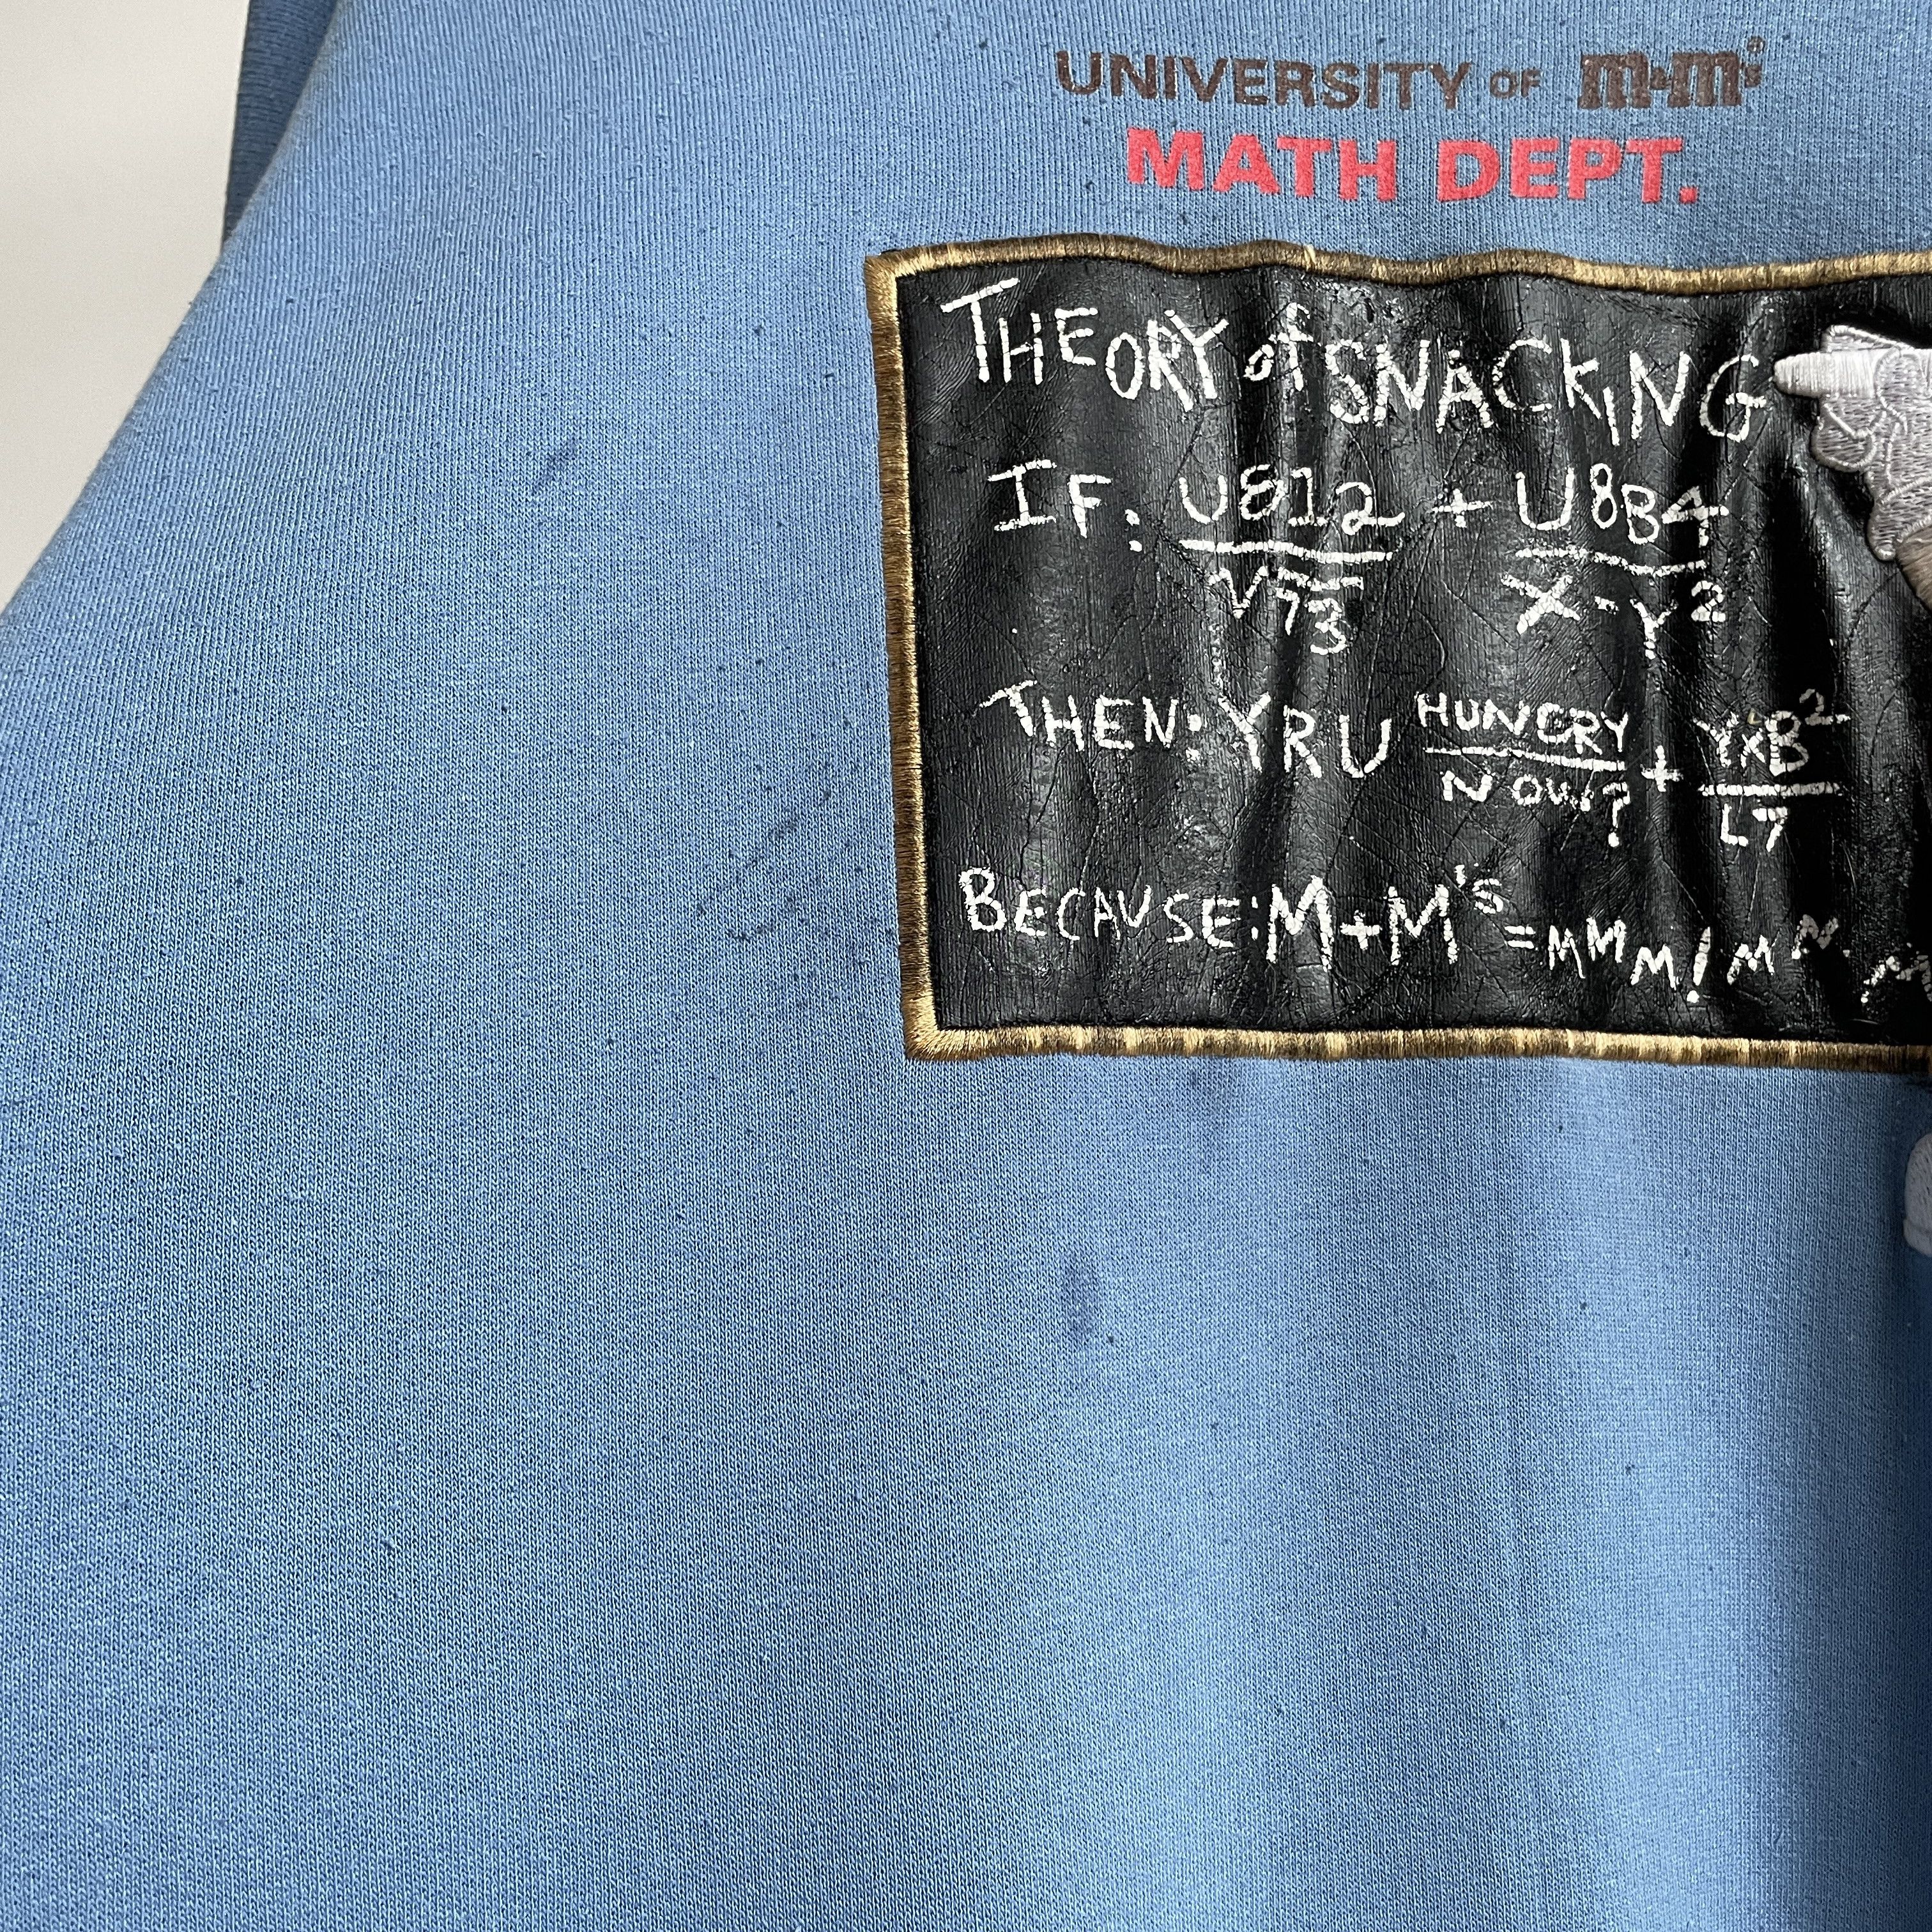 UNIVERSITY OF m&m's®
MATH DEPT.
THEORY of SNACKING
IF: U812 + U8B4
√73 X-Y²
THEN: YRU HUNGRY + YXB²
NOW? L7
BECAUSE: M+M'S = MMM! M M M